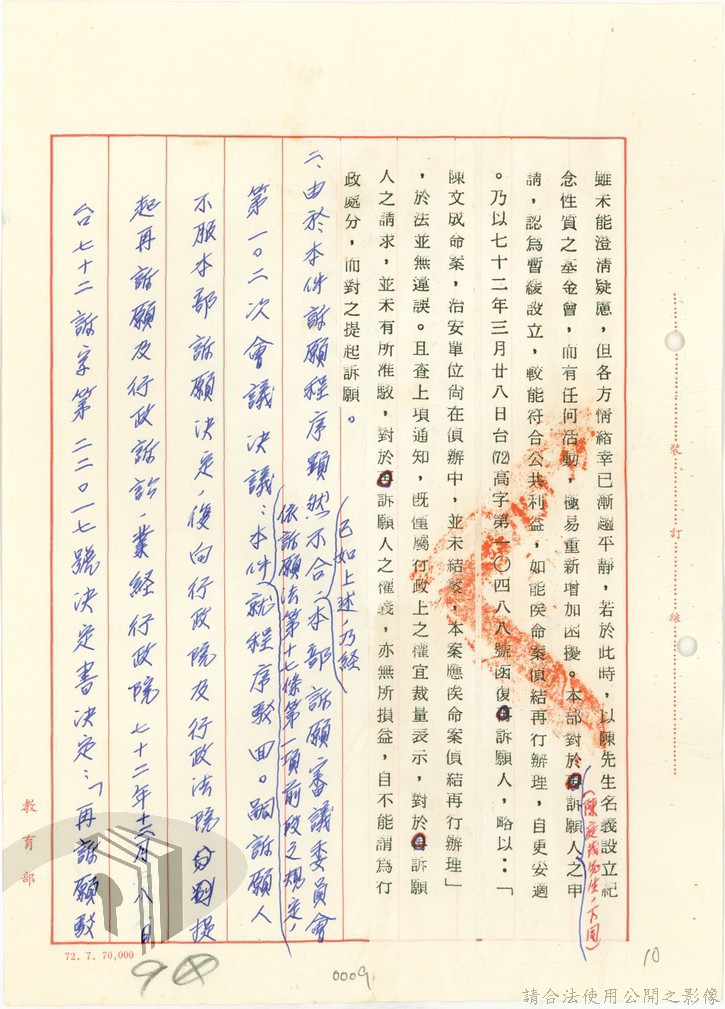 雖未能澄清疑慮，但各方情緒幸已漸趨平靜，若於此時，以陳先生名義設立紀
念性質之基金會，而有任何活動，極易重新增加困擾。本部對於訴願人之申
(陳庭茂先生，下同)
請，認為暫緩設立，較能符合公共利益，如能俟命案偵結再行辦理，自更妥適
。乃以七十二年三月廿八日台(72)高字第一〇四八八號函復訴願人，略以：「
陳文成命案，治安單位尚在偵辦中，並未結案，本案應俟命案偵結再行辦理」
，於法並無違誤。且查上項通知，既僅屬行政上之權宜裁量表示，對於訴願
人之請求，並未有所准駁，對於訴願人之權義，亦無所損益，自不能謂為行
政處分，而對之提起訴願。
已如上述，乃經
二、由於本件訴願程序顯然不合，本部訴願審議委員會
依訴願法第十七條第一項前段之規定，
第一〇二次會議決議：本件就程序駁回。嗣訴願人
不服本部訴願決定，復向行政院及行政法院分別提
起再訴願及行政訴訟，業經行政院七十二年十二月八日
台七十二訴字第二二〇一七號決定書決定：「再訴願駁
裝
訂
線
教育部
72. 7. 70,000
9
0009
10
請合法使用公開之影像